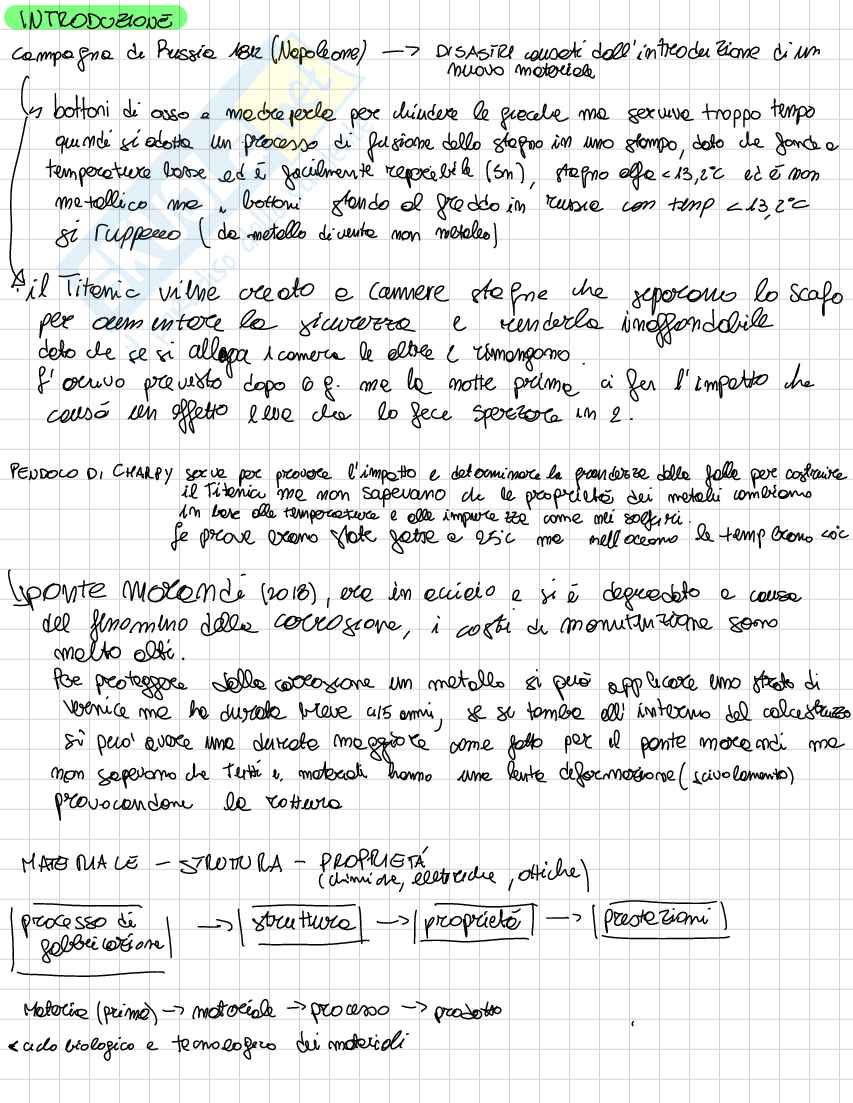 INTRODUZIONE
Campagna di Russia 1812 (Napoleone) → DISASTRI causati dall'introduzione di un
nuovo materiale
↳ bottoni di osso e madreperla per chiudere le giacche ma serviva troppo tempo
quindi si adotta un processo di fusione dello stagno in uno stampo, dato che fonde a
temperature basse ed è facilmente reperibile (Sn), stagno alfa <13,2°C ed è non
metallico ma i bottoni stando al freddo in russia con temp <13,2°C
si ruppero (da metallo diventa non metallo)
il Titanic viene creato a camere stagne che separano lo scafo
per aumentare la sicurezza e renderla inaffondabile
dato che se si allaga 1 camera le altre rimangono.
L'arrivo previsto dopo 6 g. ma la notte prima ci fu l'impatto che
causò un effetto leva che lo fece spezzare in 2.
PENDOLO DI CHARPY serve per provare l'impatto e determinare la grandezza della falla per costruire
il Titanic ma non sapevano che le proprietà dei metalli cambiano
in base alla temperatura e alle impurezze come nei solfuri.
Le prove erano state fatte a 25°C ma nell'oceano le temp erano
↳ponte morandi (2018), era in acciaio e si è degradato a causa
del fenomino della corrosione, i costi di manutenzione sono
molto alti.
Per proteggere dalla corrosione un metallo si può applicare uno strato di
vernice ma ha durata breve 4/5 anni, se si tomba all'interno del calcestruzzo
si puo' avere una durata maggiore come fatto per il ponte morandi ma
non sapevano che tutti i materiali hanno una lenta deformazione (scivolamento)
provocandone la rottura
MATERIALE – STRUTURA – PROPRIETÁ
(chimiche, elettriche, ottiche)
processo di fabbricazione → struttura → proprietá → prestazioni
Materia (prima) → materiale → processo → prodotto
< ciclo biologico e tecnologico dei materiali